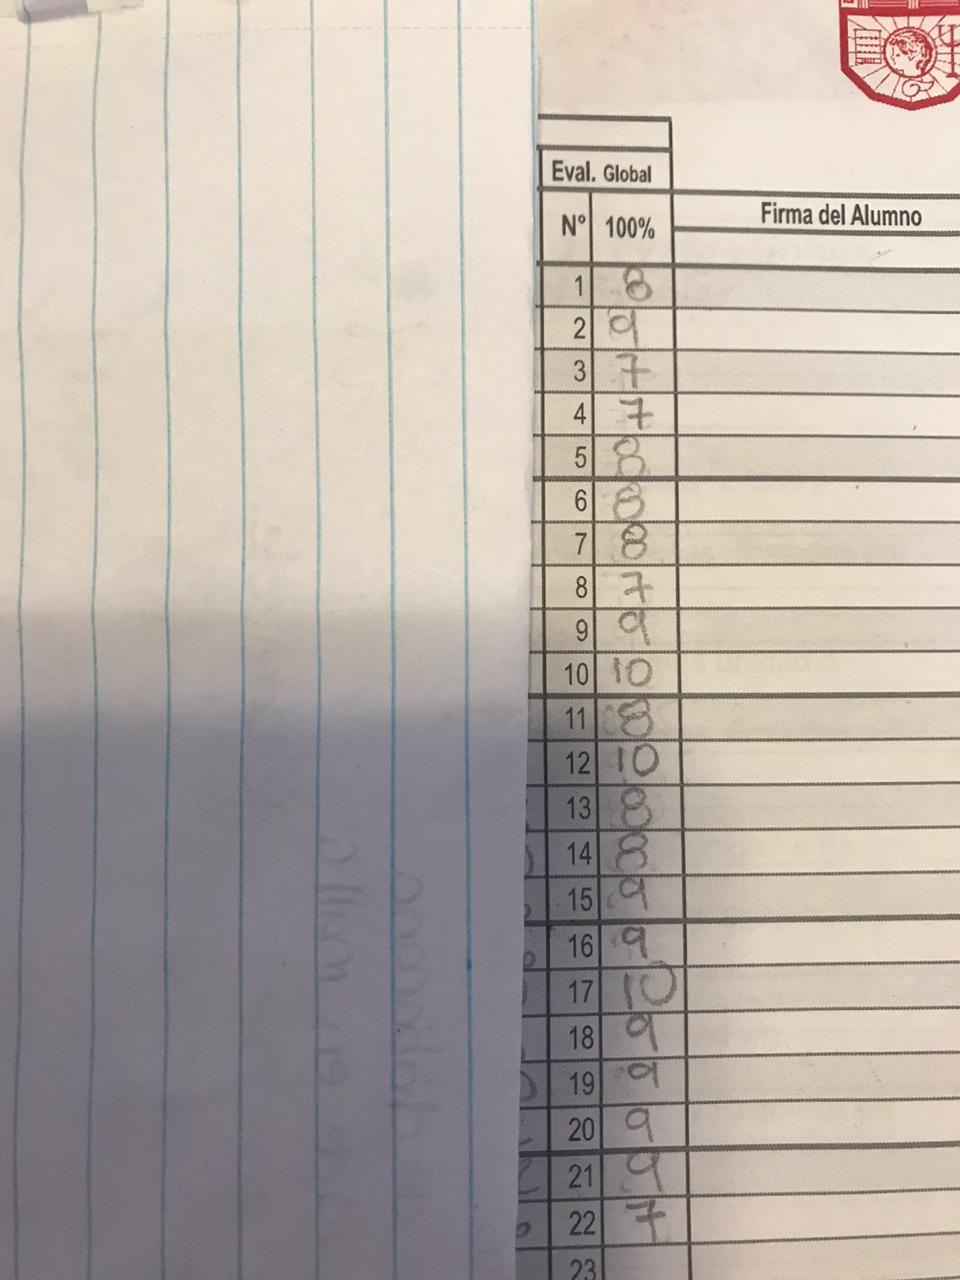 Eval. Global
Firma del Alumno
N° 100%
1 8
2 9
3 7
4 7
5 8
6 8
7 8
8 7
9 9
10 10
11 8
12 10
13 8
14 8
15 9
16 9
17 10
18 9
19 9
20 9
21 9
22 7
23